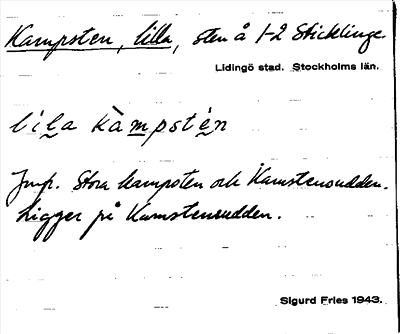 Kampsten, lilla, sten å 1-2 Sticklinge
Lidingö stad. Stockholms län.
lìla kàmpstén
Jmf. Stora kampsten och Kamstensudden.
Ligger på Kamstensudden.
Sigurd Fries 1943.